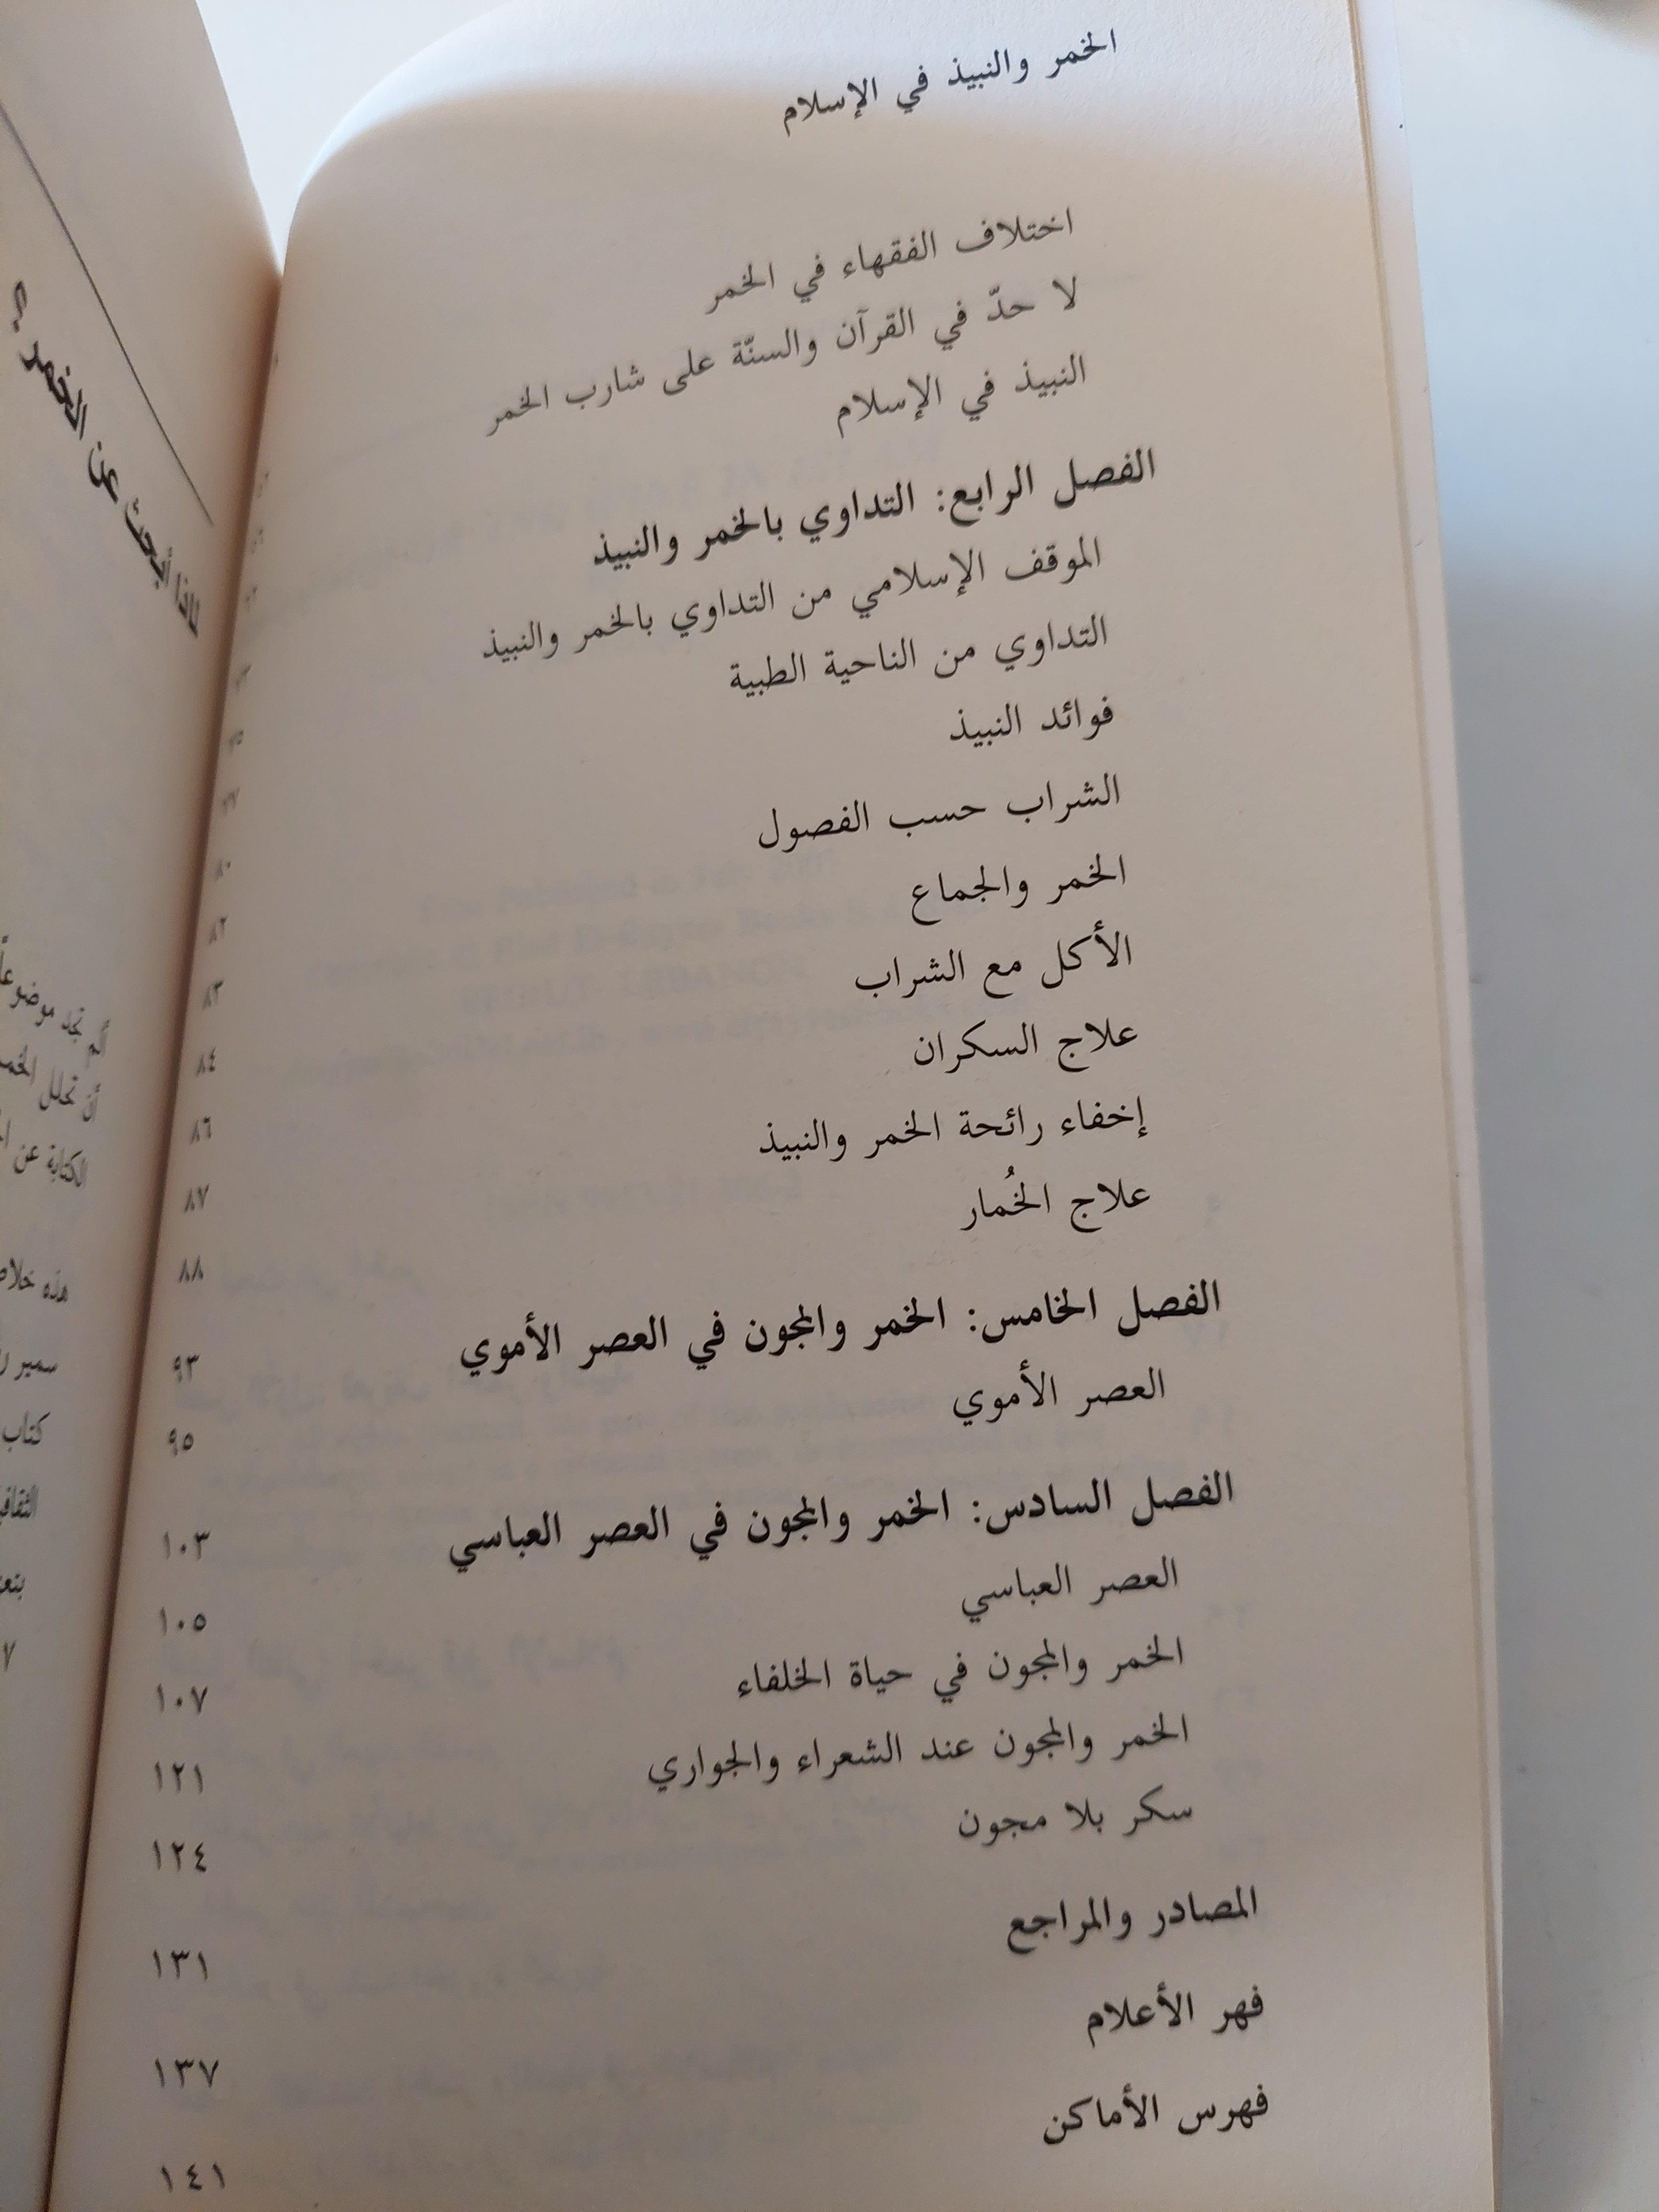 الخمر والنبيذ في الإسلام
اختلاف الفقهاء في الخمر
لا حدّ في القرآن والسنّة على شارب الخمر
النبيذ في الإسلام
الفصل الرابع: التداوي بالخمر والنبيذ
الموقف الإسلامي من التداوي بالخمر والنبيذ
التداوي من الناحية الطبية
فوائد النبيذ
الشراب حسب الفصول ٨٠
الخمر والجماع ٨٢
الأكل مع الشراب ٨٣
علاج السكران ٨٤
إخفاء رائحة الخمر والنبيذ ٨٦
علاج الخُمار ٨٧
٨٨
الفصل الخامس: الخمر والمجون في العصر الأموي ٩٣
العصر الأموي ٩٥
الفصل السادس: الخمر والمجون في العصر العباسي ١٠٣
العصر العباسي ١٠٥
الخمر والمجون في حياة الخلفاء ١٠٧
الخمر والمجون عند الشعراء والجواري ١٢١
سكر بلا مجون ١٢٤
المصادر والمراجع ١٣١
فهر الأعلام ١٣٧
فهرس الأماكن ١٤١
لماذا أبحث عن الخمر
ألم تجد موضوعاً
أن تحلل
الكتابة عن
هذه
سمير
كتاب
٧